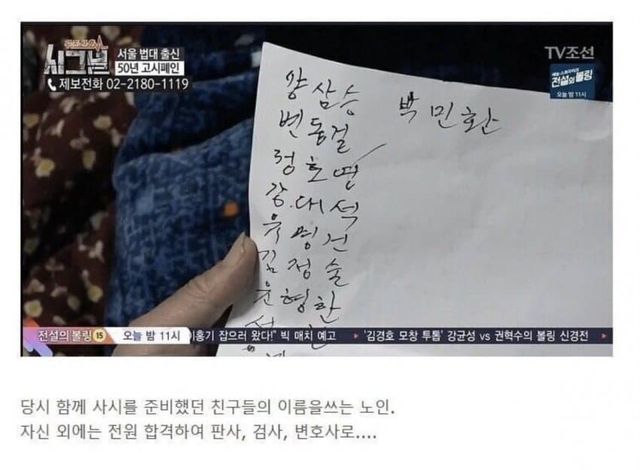 시그널
서울 법대 출신
50년 고시폐인
제보전화 02-2180-1119
TV조선
전설의 볼링
오늘 밤 11시
양삼승
박민환
변동걸
정호영
강대석
유명건
김정술
윤형한
전설의 볼링 15 오늘 밤 11시 이홍기 잡으러 왔다!" 빅 매치 예고 ▶ '김경호 모창 투톱' 강균성 vs 권혁수의 볼링 신경전 ▶
당시 함께 사시를 준비했던 친구들의 이름을쓰는 노인.
자신 외에는 전원 합격하여 판사, 검사, 변호사로....